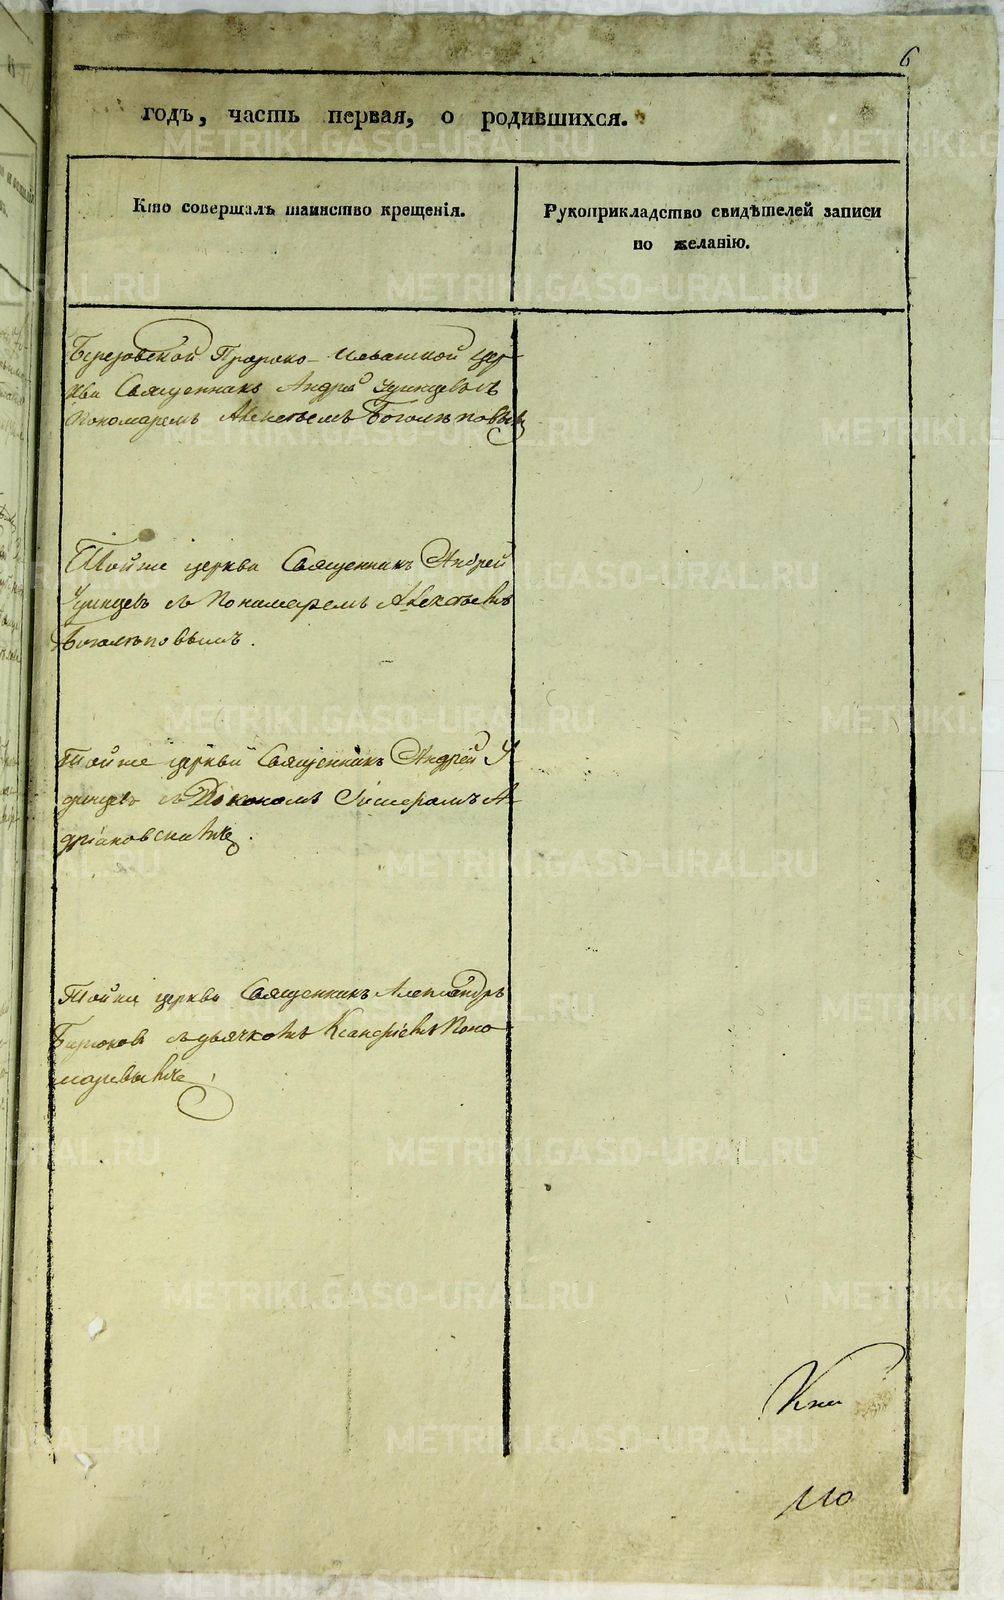 6
годъ, часть первая, о родившихся.
Кто совершалъ таинство крещенія.
Рукоприкладство свидѣтелей записи
по желанію.
Березовской Пророко-Ильинской цер-
кви Священникъ Андрей Удинцевъ съ
Пономаремъ Алексѣемъ Боголѣповымъ
Тойже церкви Священникъ Андрей
Удинцевъ съ Пономаремъ Алексѣемъ
Боголѣповымъ.
Тойже церкви Священникъ Андрей У
динцевъ съ
Тойже церкви Священникъ Александръ
Бирюковъ съ дьячкомъ По но
маревымъ
Кни
110
METRIKI.GASO-URAL.RU